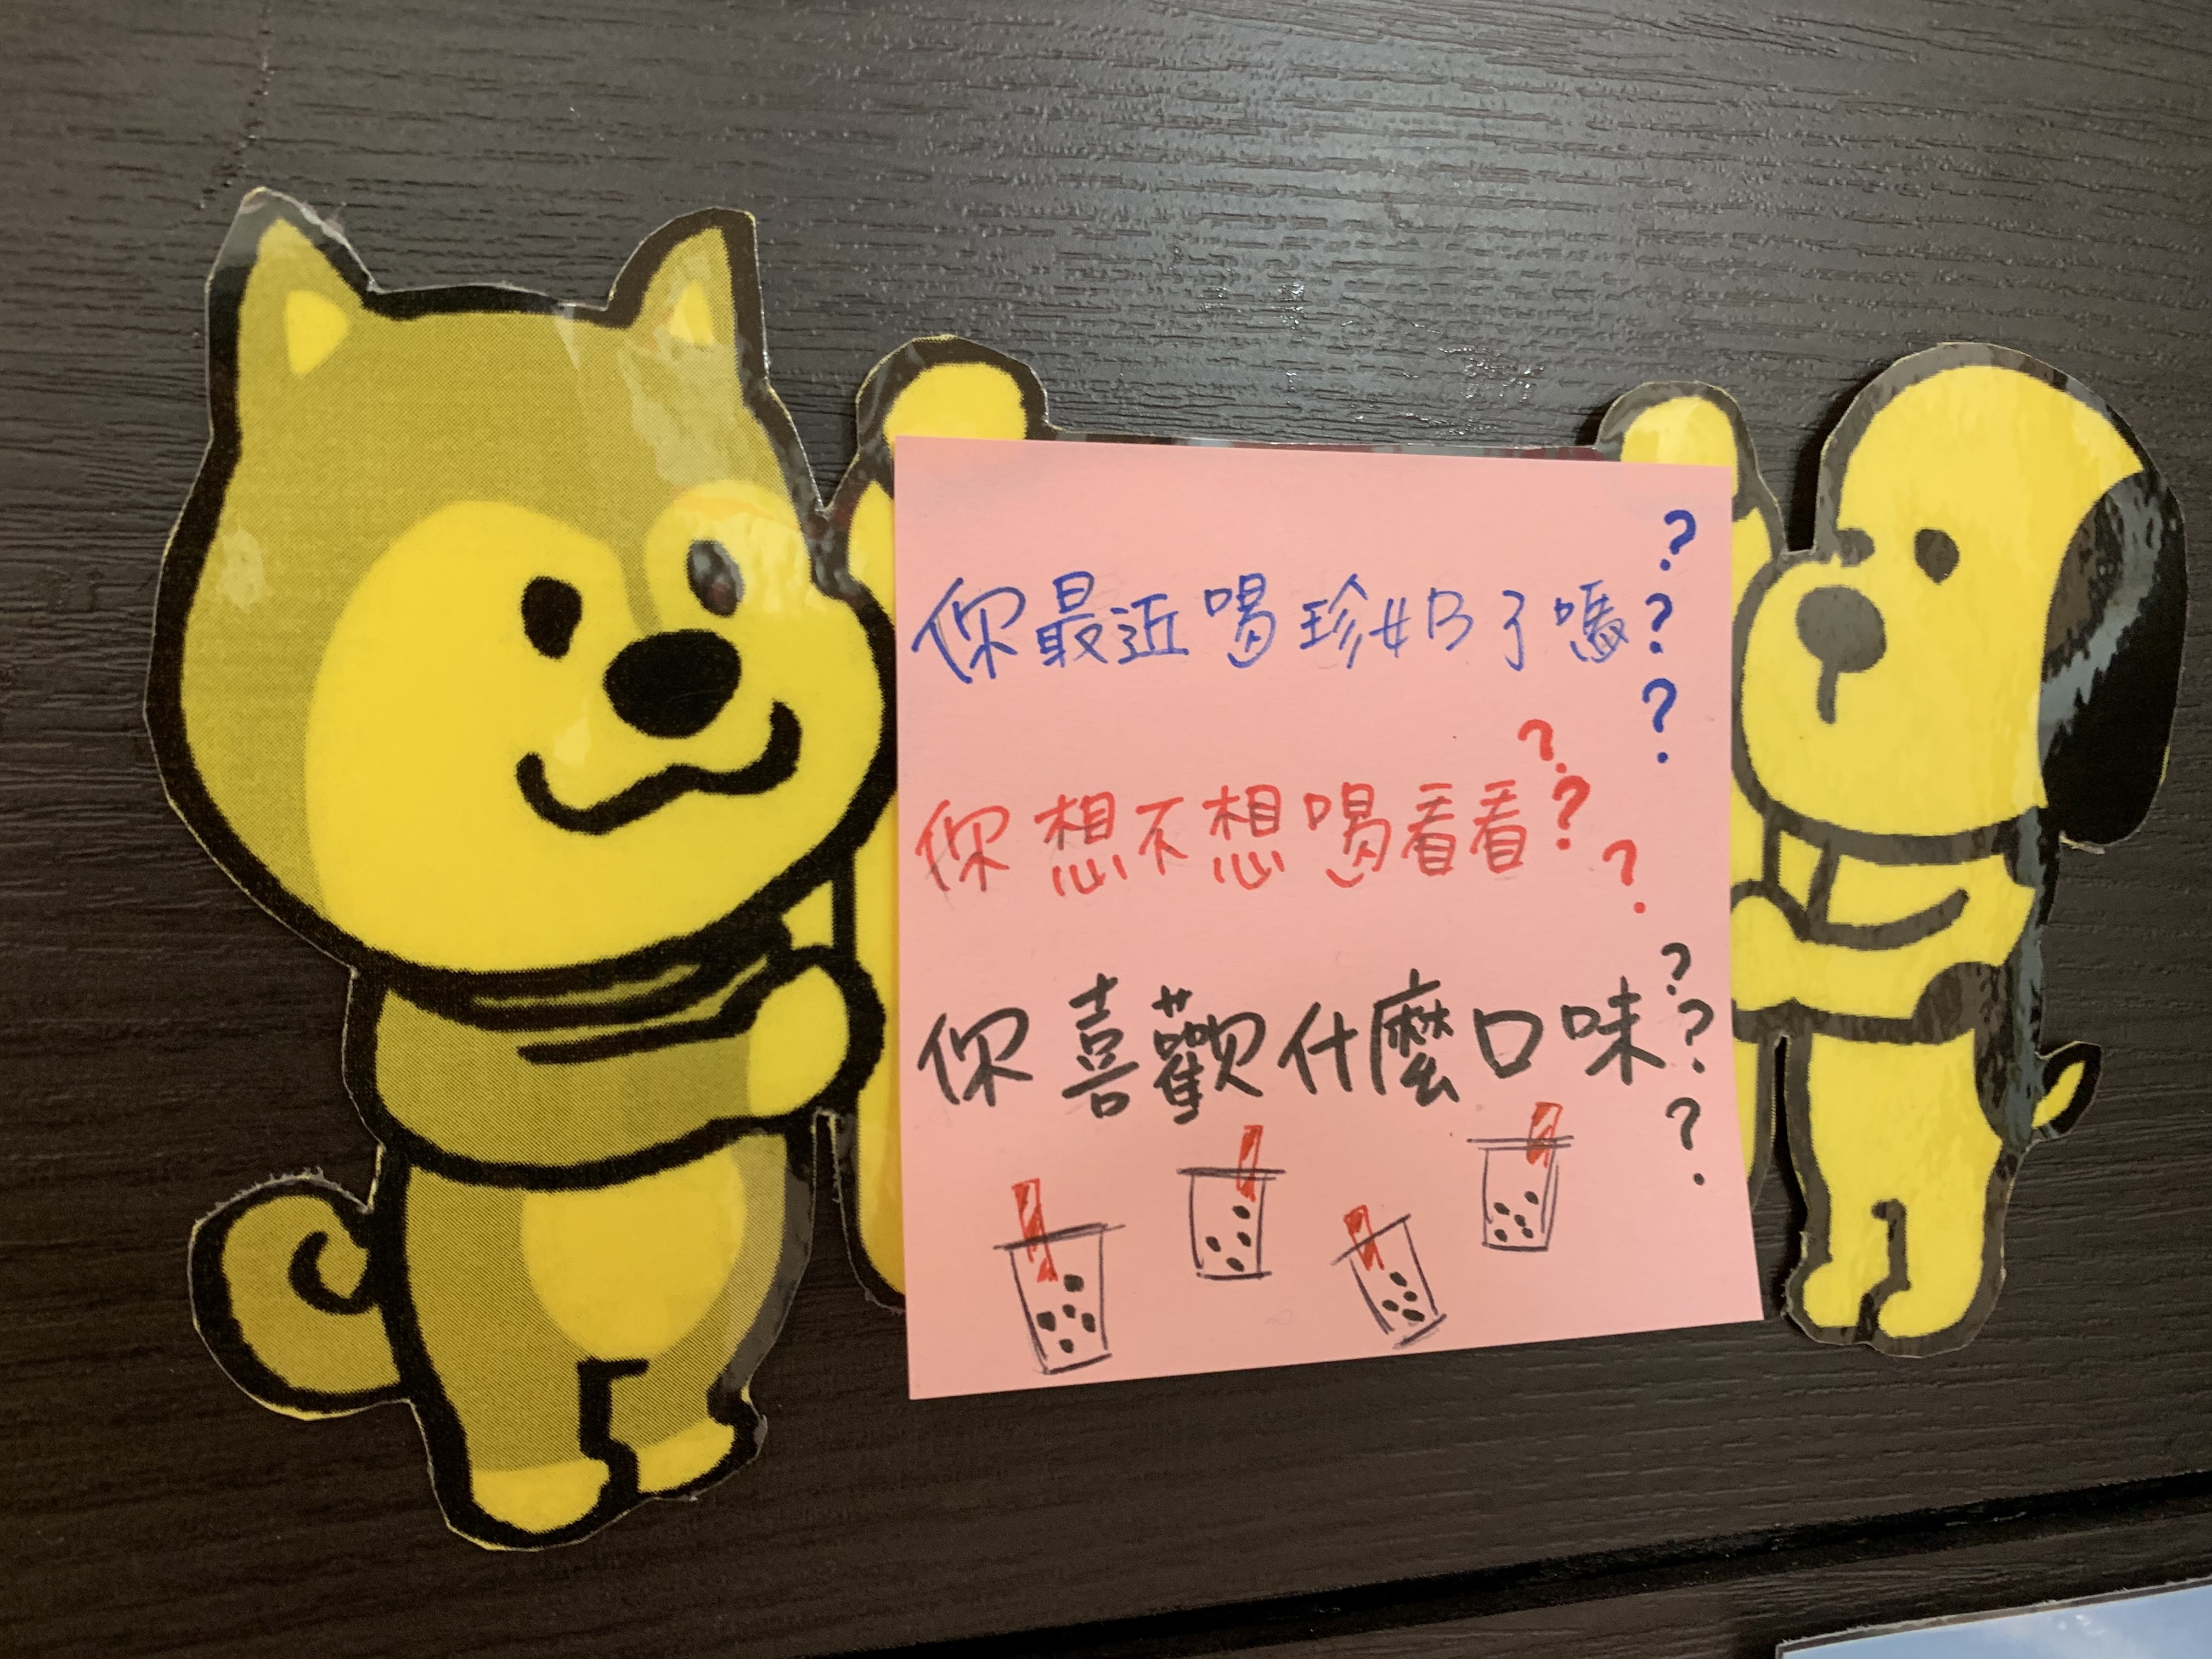 你最近喝珍奶了嗎???
你想不想喝看看???
你喜歡什麼口味???